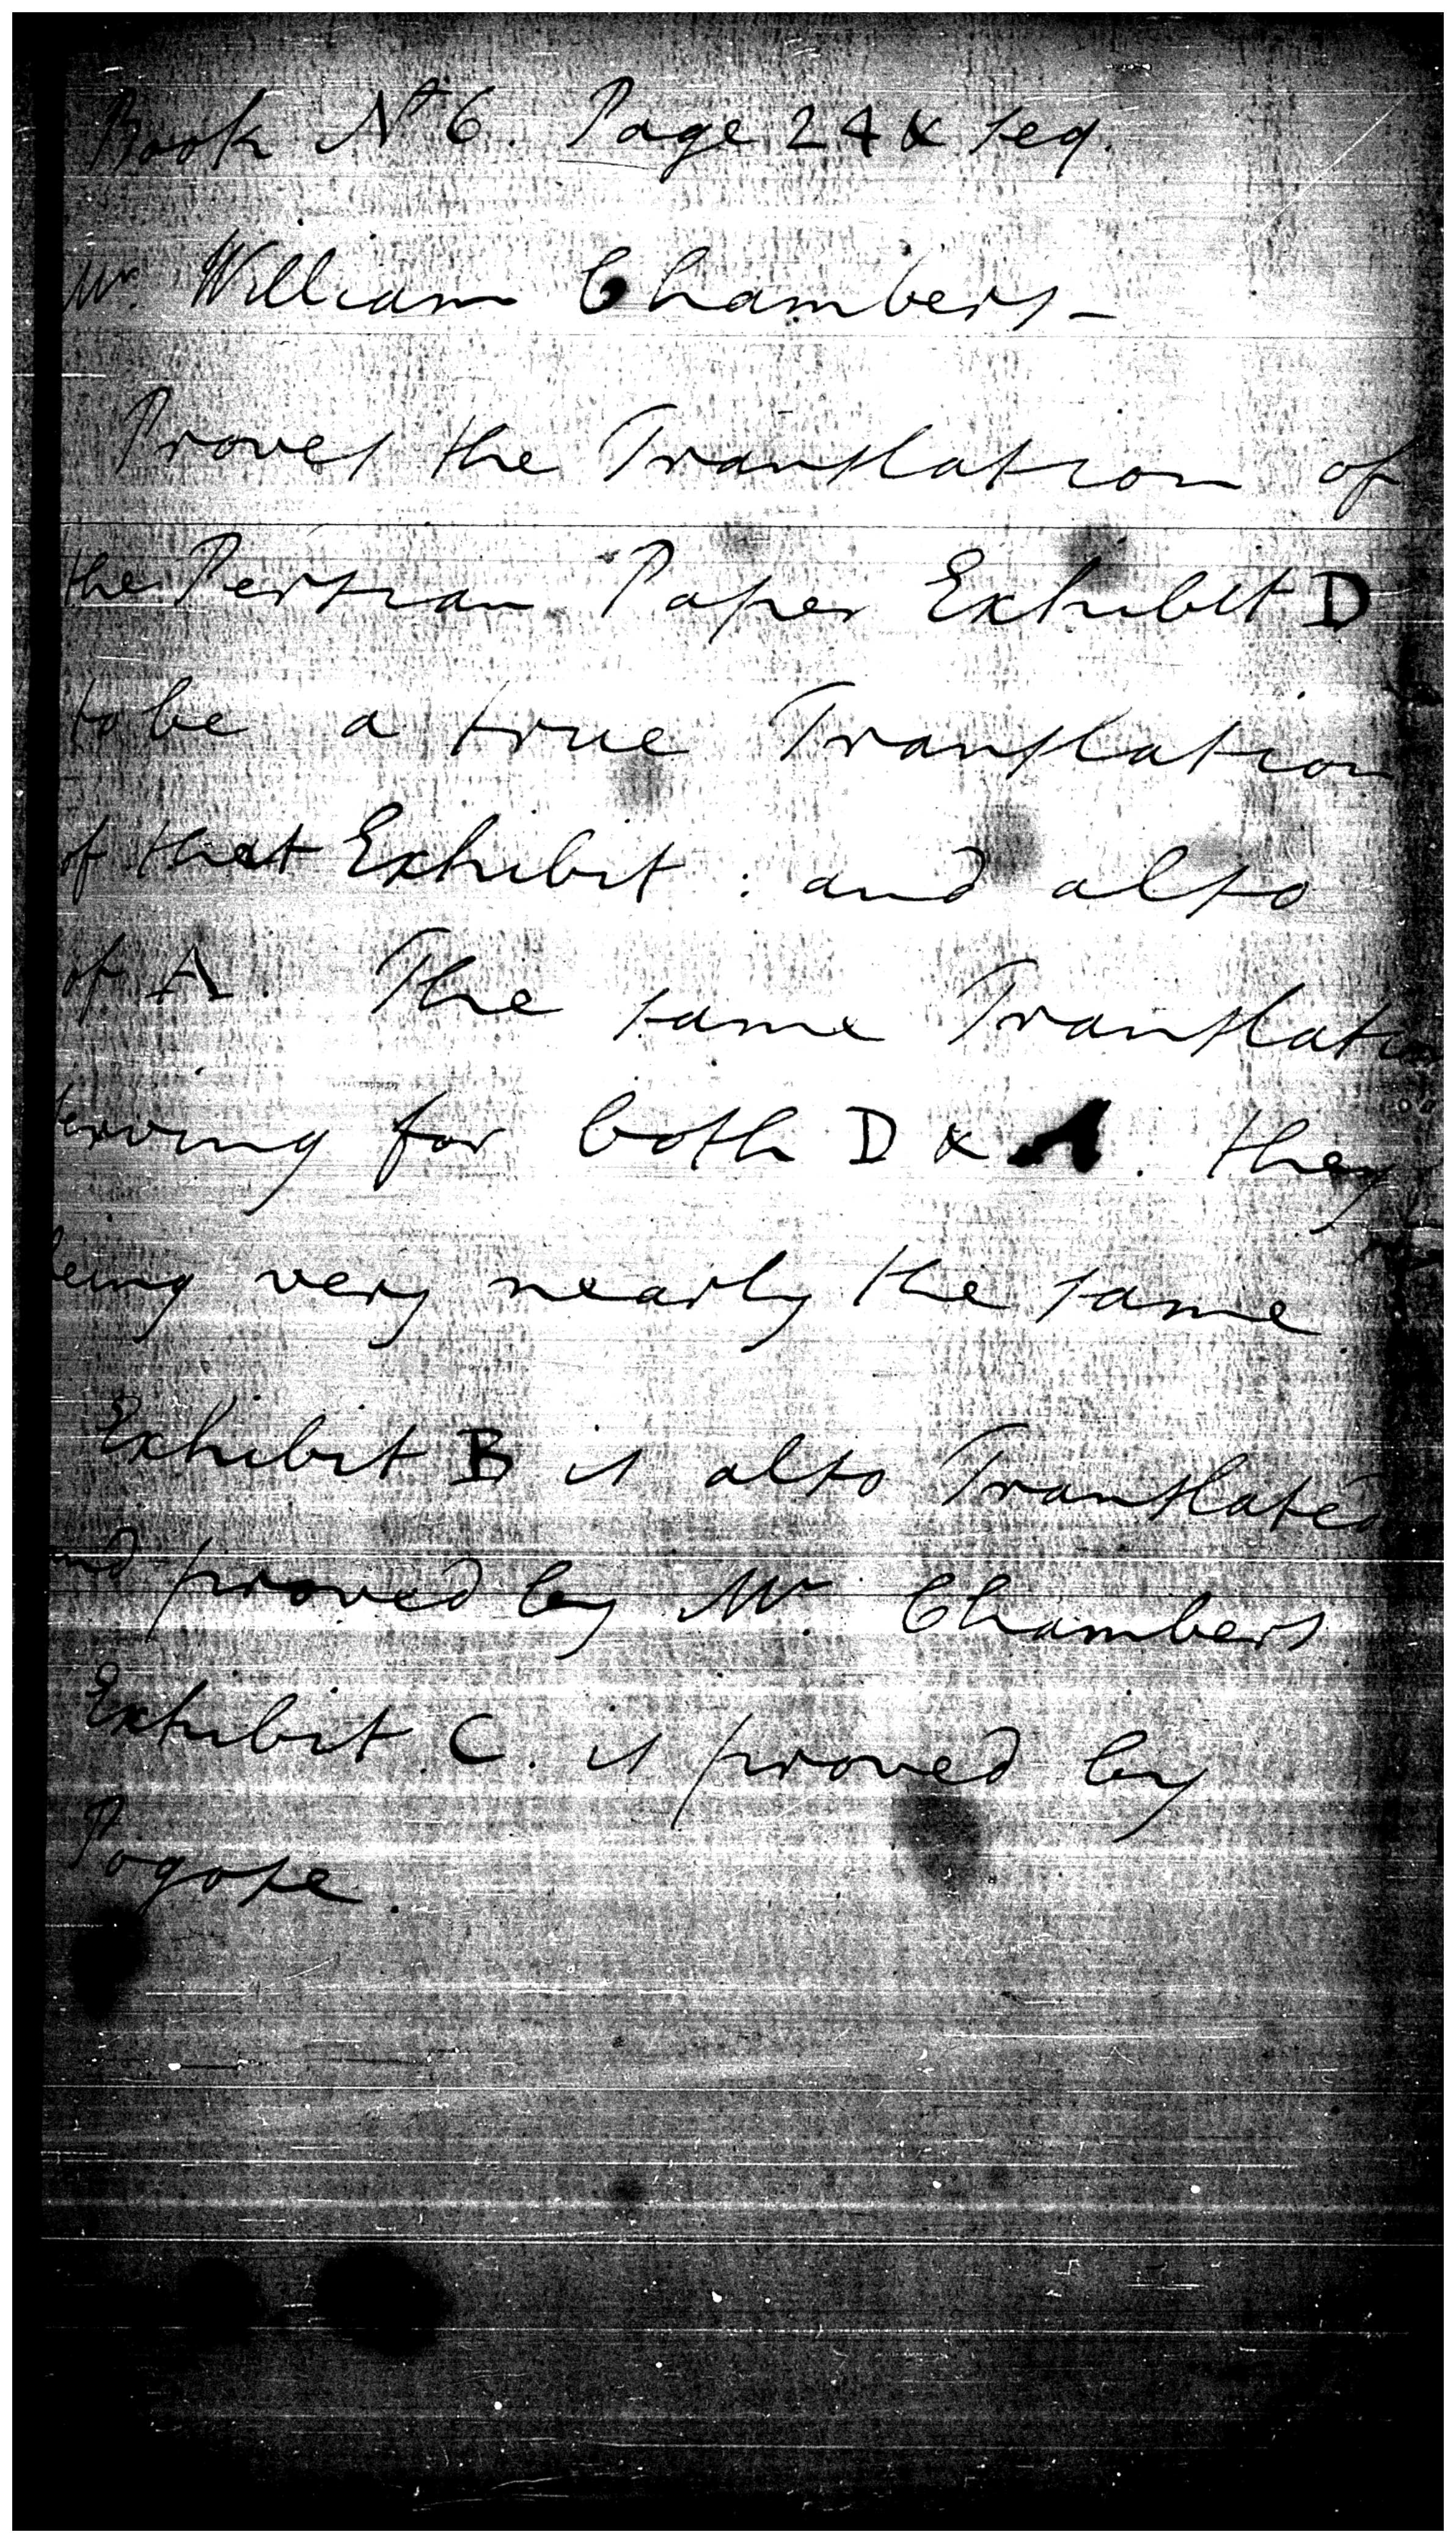 Book No 6. Page 24 & seq.
Mr. William Chambers -
Proves the Translation of
the Persian Paper Exhibit D
to be a true Translation
of that Exhibit : and also
of A. The same Translation
serving for both D & A. they
being very nearly the same
Exhibit B is also Translated
and proved by Mr. Chambers
Exhibit C. is proved by
Pogose.